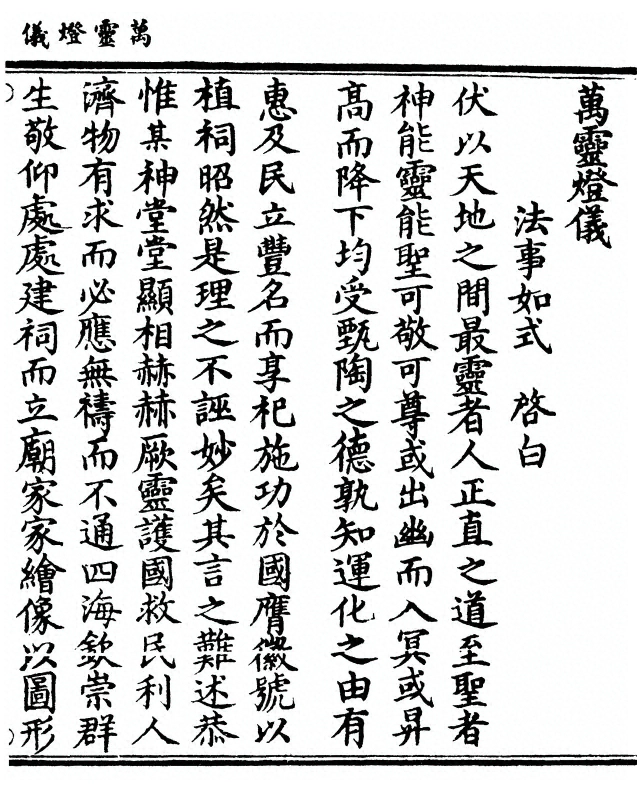 萬靈燈儀
萬靈燈儀
法事如式　啓白
伏以天地之間最靈者人正直之道至聖者
神能靈能聖可敬可尊或出幽而入冥或昇
高而降下均受甄陶之德孰知運化之由有
惠及民立豐名而享祀施功於國膺徽號以
植祠昭然是理之不誣妙矣其言之難述恭
惟某神堂堂顯相赫赫厥靈護國救民利人
濟物有求而必應無禱而不通四海欽崇群
生敬仰處處建祠而立廟家家繪像以圖形